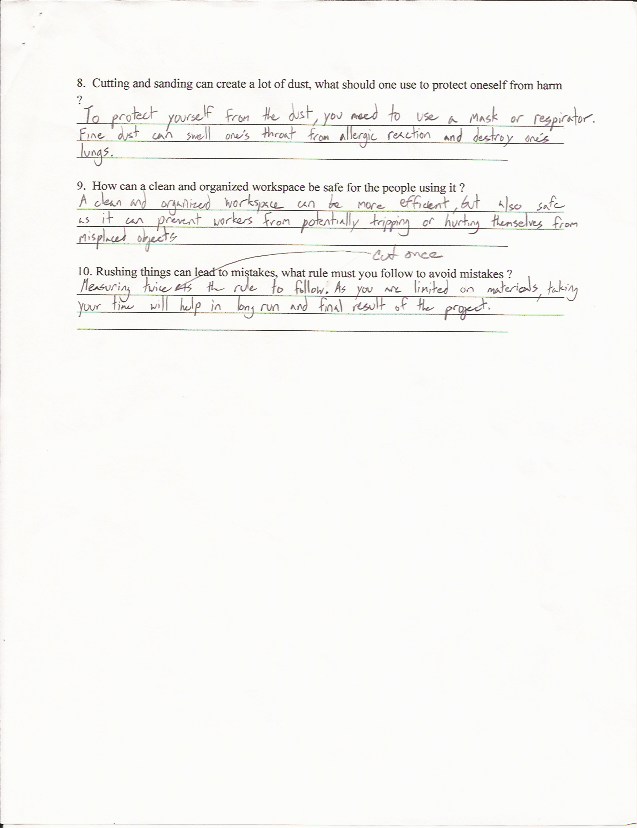 8. Cutting and sanding can create a lot of dust, what should one use to protect oneself from harm
?
To protect yourself from the dust, you need to use a mask or respirator.
Fine dust can swell one's throat from allergic reaction and destroy one's
lungs.
9. How can a clean and organized workspace be safe for the people using it ?
A clean and organized workspace can be more efficient, but also safe
as it can prevent workers from potentially tripping or hurting themselves from
misplaced objects
cut once
10. Rushing things can lead to mistakes, what rule must you follow to avoid mistakes ?
Measuring twice is the rule to follow. As you are limited on materials, taking
your time will help in long run and final result of the project.